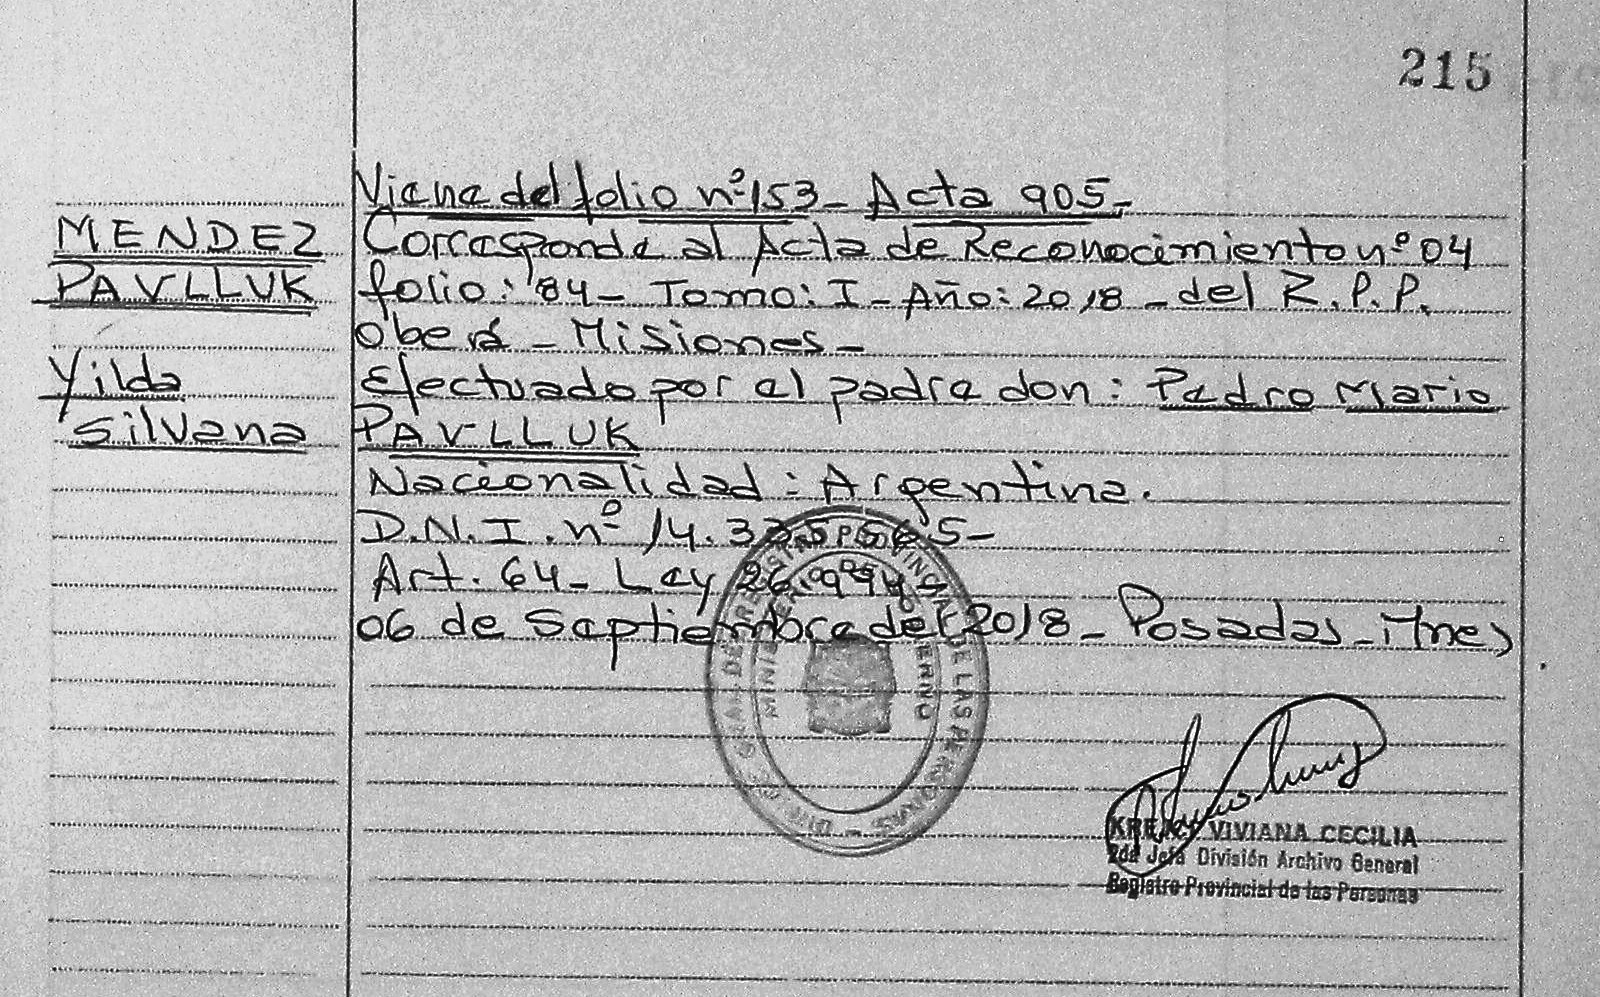 215
MENDEZ
PAVLLUK
Yilda
Silvana
Viene del folio nº 153 - Acta 905 -
Corresponde al Acta de Reconocimiento nº 04
folio: 84 - Tomo: I - Año: 2018 - del R.P.P.
Oberá - Misiones -
Efectuado por el padre don: Pedro Mario
PAVLLUK
Nacionalidad: Argentina.
D.N.I. nº 14.335.565 -
Art. 64 - Ley 26.994 -
06 de Septiembre del 2018 - Posadas - Mnes
DE REGISTRO PROVINCIAL DE LAS PERSONAS
MINISTERIO DE GOBIERNO
VIVIANA CECILIA
2da Jefa División Archivo General
Registro Provincial de las Personas